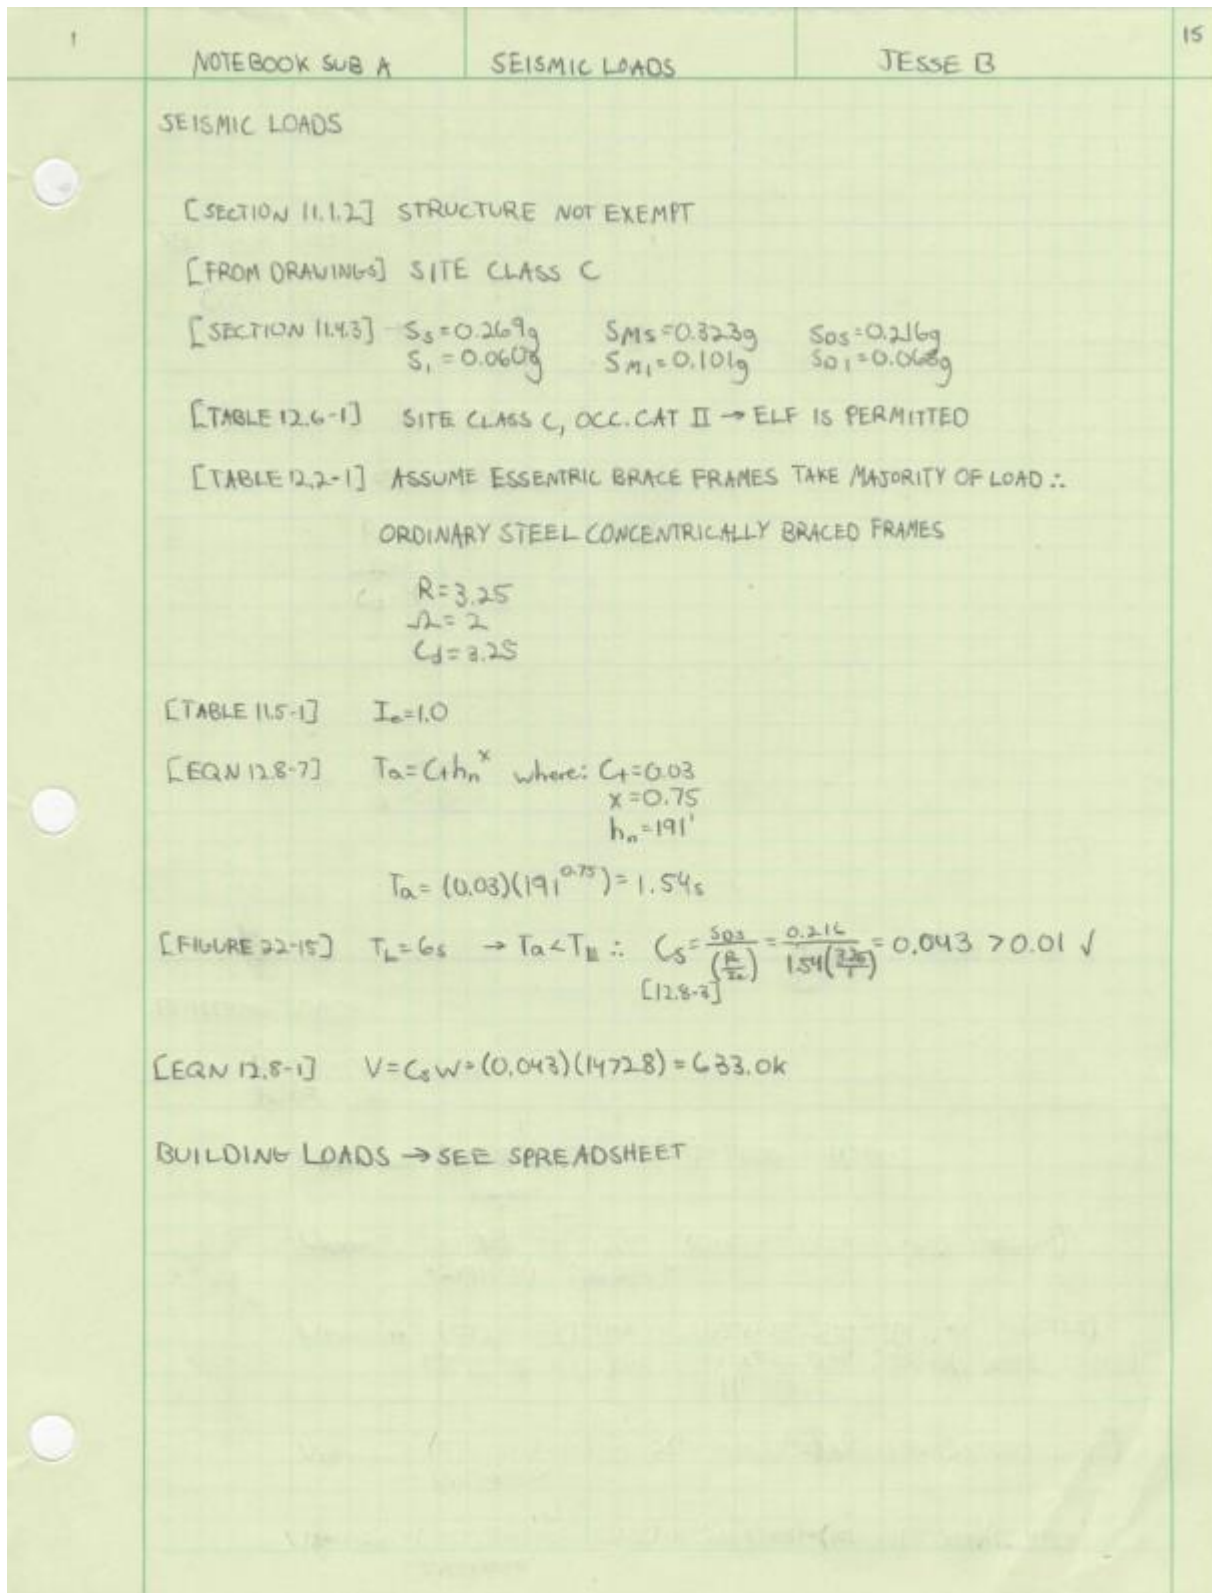 1
15
NOTEBOOK SUB A SEISMIC LOADS JESSE B
SEISMIC LOADS
[SECTION 11.1.2] STRUCTURE NOT EXEMPT
[FROM DRAWINGS] SITE CLASS C
[SECTION 11.4.3] Ss=0.269g SMS=0.323g SDS=0.216g
S1=0.060g SM1=0.101g SD1=0.068g
[TABLE 12.6-1] SITE CLASS C, OCC. CAT II → ELF IS PERMITTED
[TABLE 12.2-1] ASSUME ESSENTRIC BRACE FRAMES TAKE MAJORITY OF LOAD ∴
ORDINARY STEEL CONCENTRICALLY BRACED FRAMES
R=3.25
Ω=2
Cd=3.25
[TABLE 11.5-1] Ie=1.0
[EQN 12.8-7] Ta=Cthn^x where: Ct=0.03
x=0.75
hn=191'
Ta=(0.03)(191^0.75)=1.54s
[FIGURE 22-15] TL=6s → Ta<TL ∴ Cs=SDS/(R/Ie)=0.216/1.54(3.25/1)=0.043 >0.01 √
[12.8-3]
[EQN 12.8-1] V=CsW=(0.043)(14728)=633.0k
BUILDING LOADS → SEE SPREADSHEET